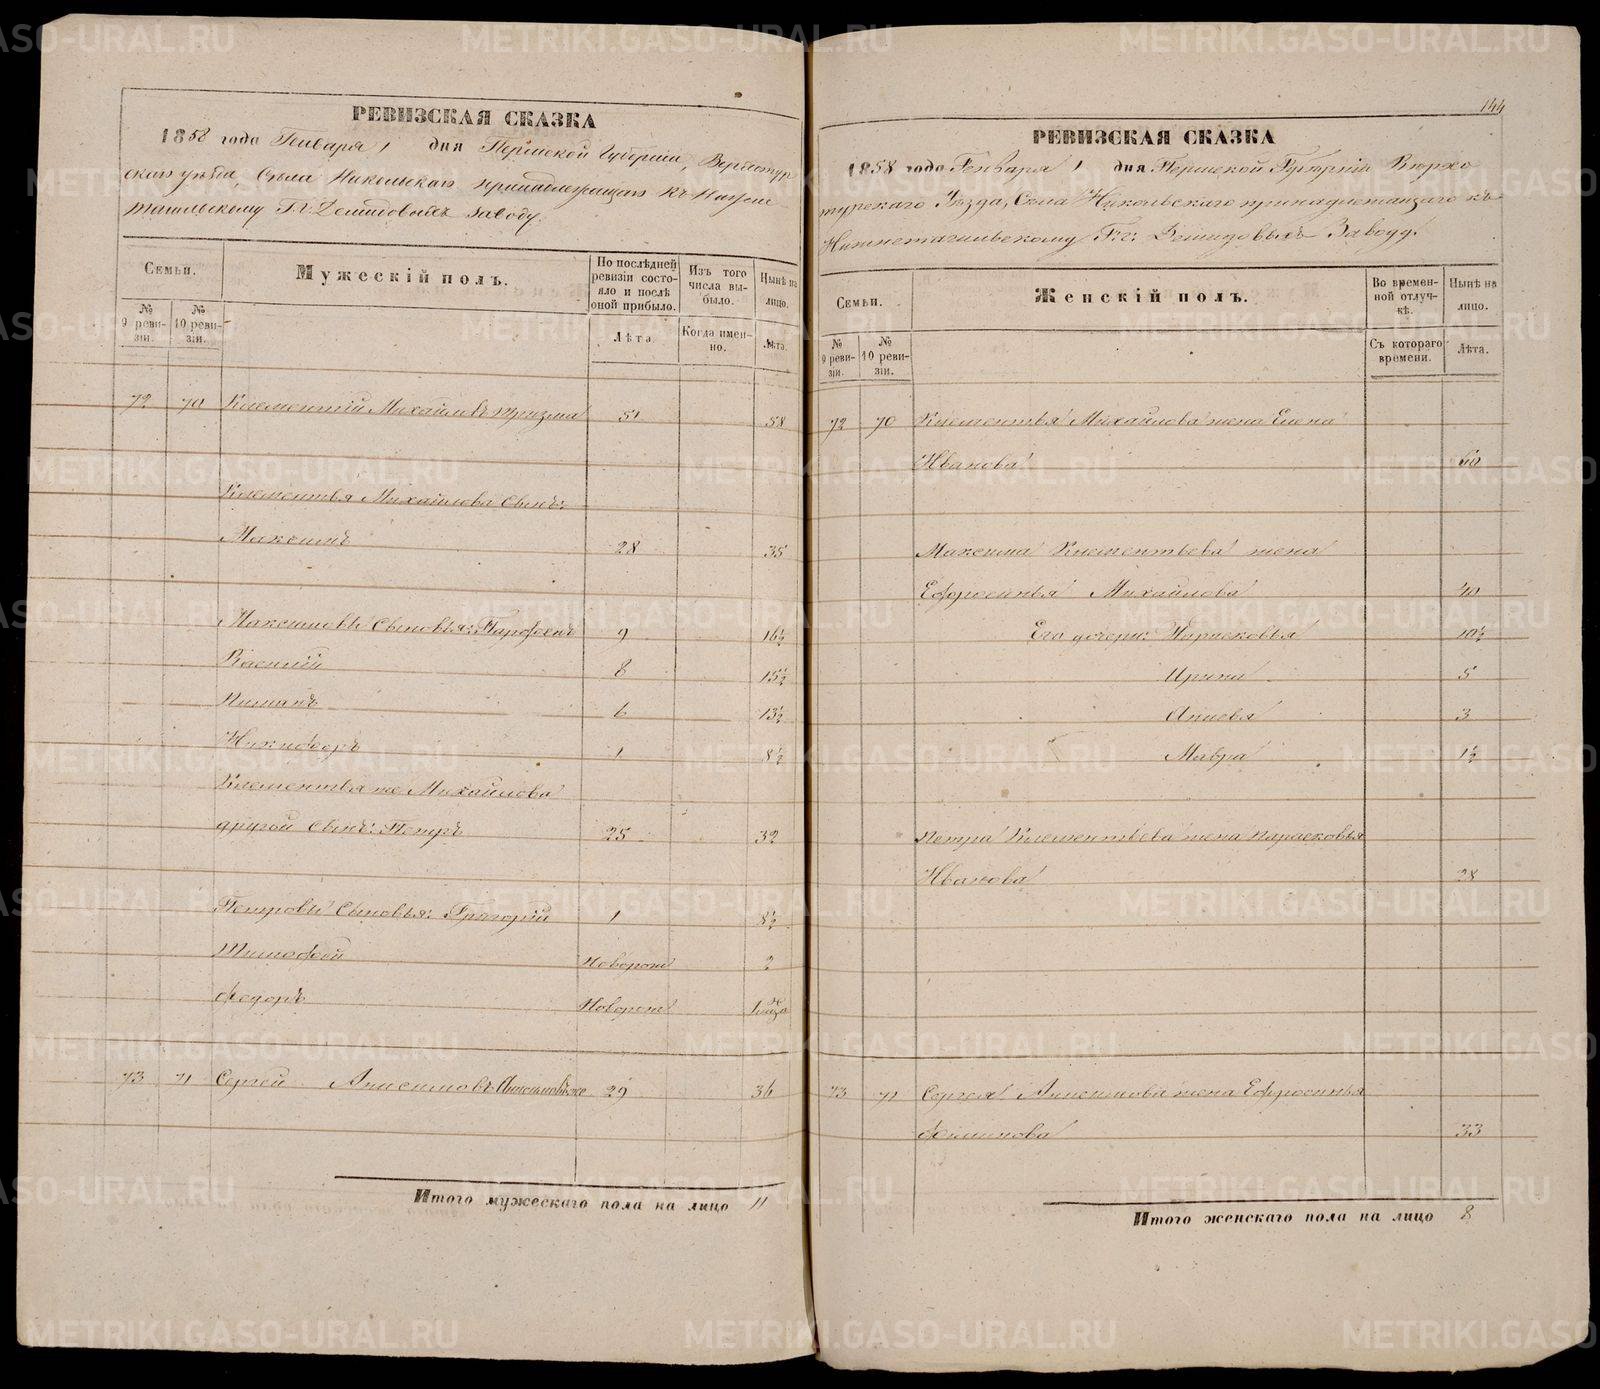 РЕВИЗСКАЯ СКАЗКА
1858 года Генваря 1 дня Пермской Губернии, Верхотур
скаго уѣзда, Села Никольскаго принадлежащаго къ Нижне
тагильскому Г.г. Демидовыхъ заводу.
Семьи.
№ 9 ревизіи.
№ 10 ревизіи.
Мужескій полъ.
По послѣдней ревизіи состояло и послѣ оной прибыло.
Лѣта.
Изъ того числа выбыло.
Когда именно.
Нынѣ на лицо.
Лѣта.
72 70 Клементій Михайловъ 51 58
Клементья Михайлова Сынъ:
Максимъ 28 35
Максимовы Сыновья: Парфенъ 9 16½
Василій 8 15½
Пиманъ 6 13½
Никифоръ 1 8½
Клементья же Михайлова
другой Сынъ: Петръ 25 32
Петровы Сыновья: Григорій 1 8½
Тимофей Новорож 2
Федоръ Новорож
73 71 Сергей Анисимовъ 29 36
Итого мужескаго пола на лицо 11
144
РЕВИЗСКАЯ СКАЗКА
1858 года Генваря 1 дня Пермской Губерніи Верхо
турскаго Уѣзда, Села Никольскаго принадлежащаго къ
Нижнетагильскому Г.г. Демидовыхъ Заводу.
Семьи.
№ 9 ревизіи.
№ 10 ревизіи.
Женскій полъ.
Во временной отлучкѣ.
Съ котораго времени.
Нынѣ на лицо.
Лѣта.
72 70 Клементья Михайлова жена Елена
Иванова 60
Максима Клементьева жена
Ефросинья Михайлова 40
Его дочери: Парасковья 10½
Ирина 5
Апиевя 3
Мавра 1½
Петра Клементьева жена Парасковья
Иванова 28
73 71 Сергея Анисимова жена Ефросинья
33
Итого женскаго пола на лицо 8
METRIKI.GASO-URAL.RU